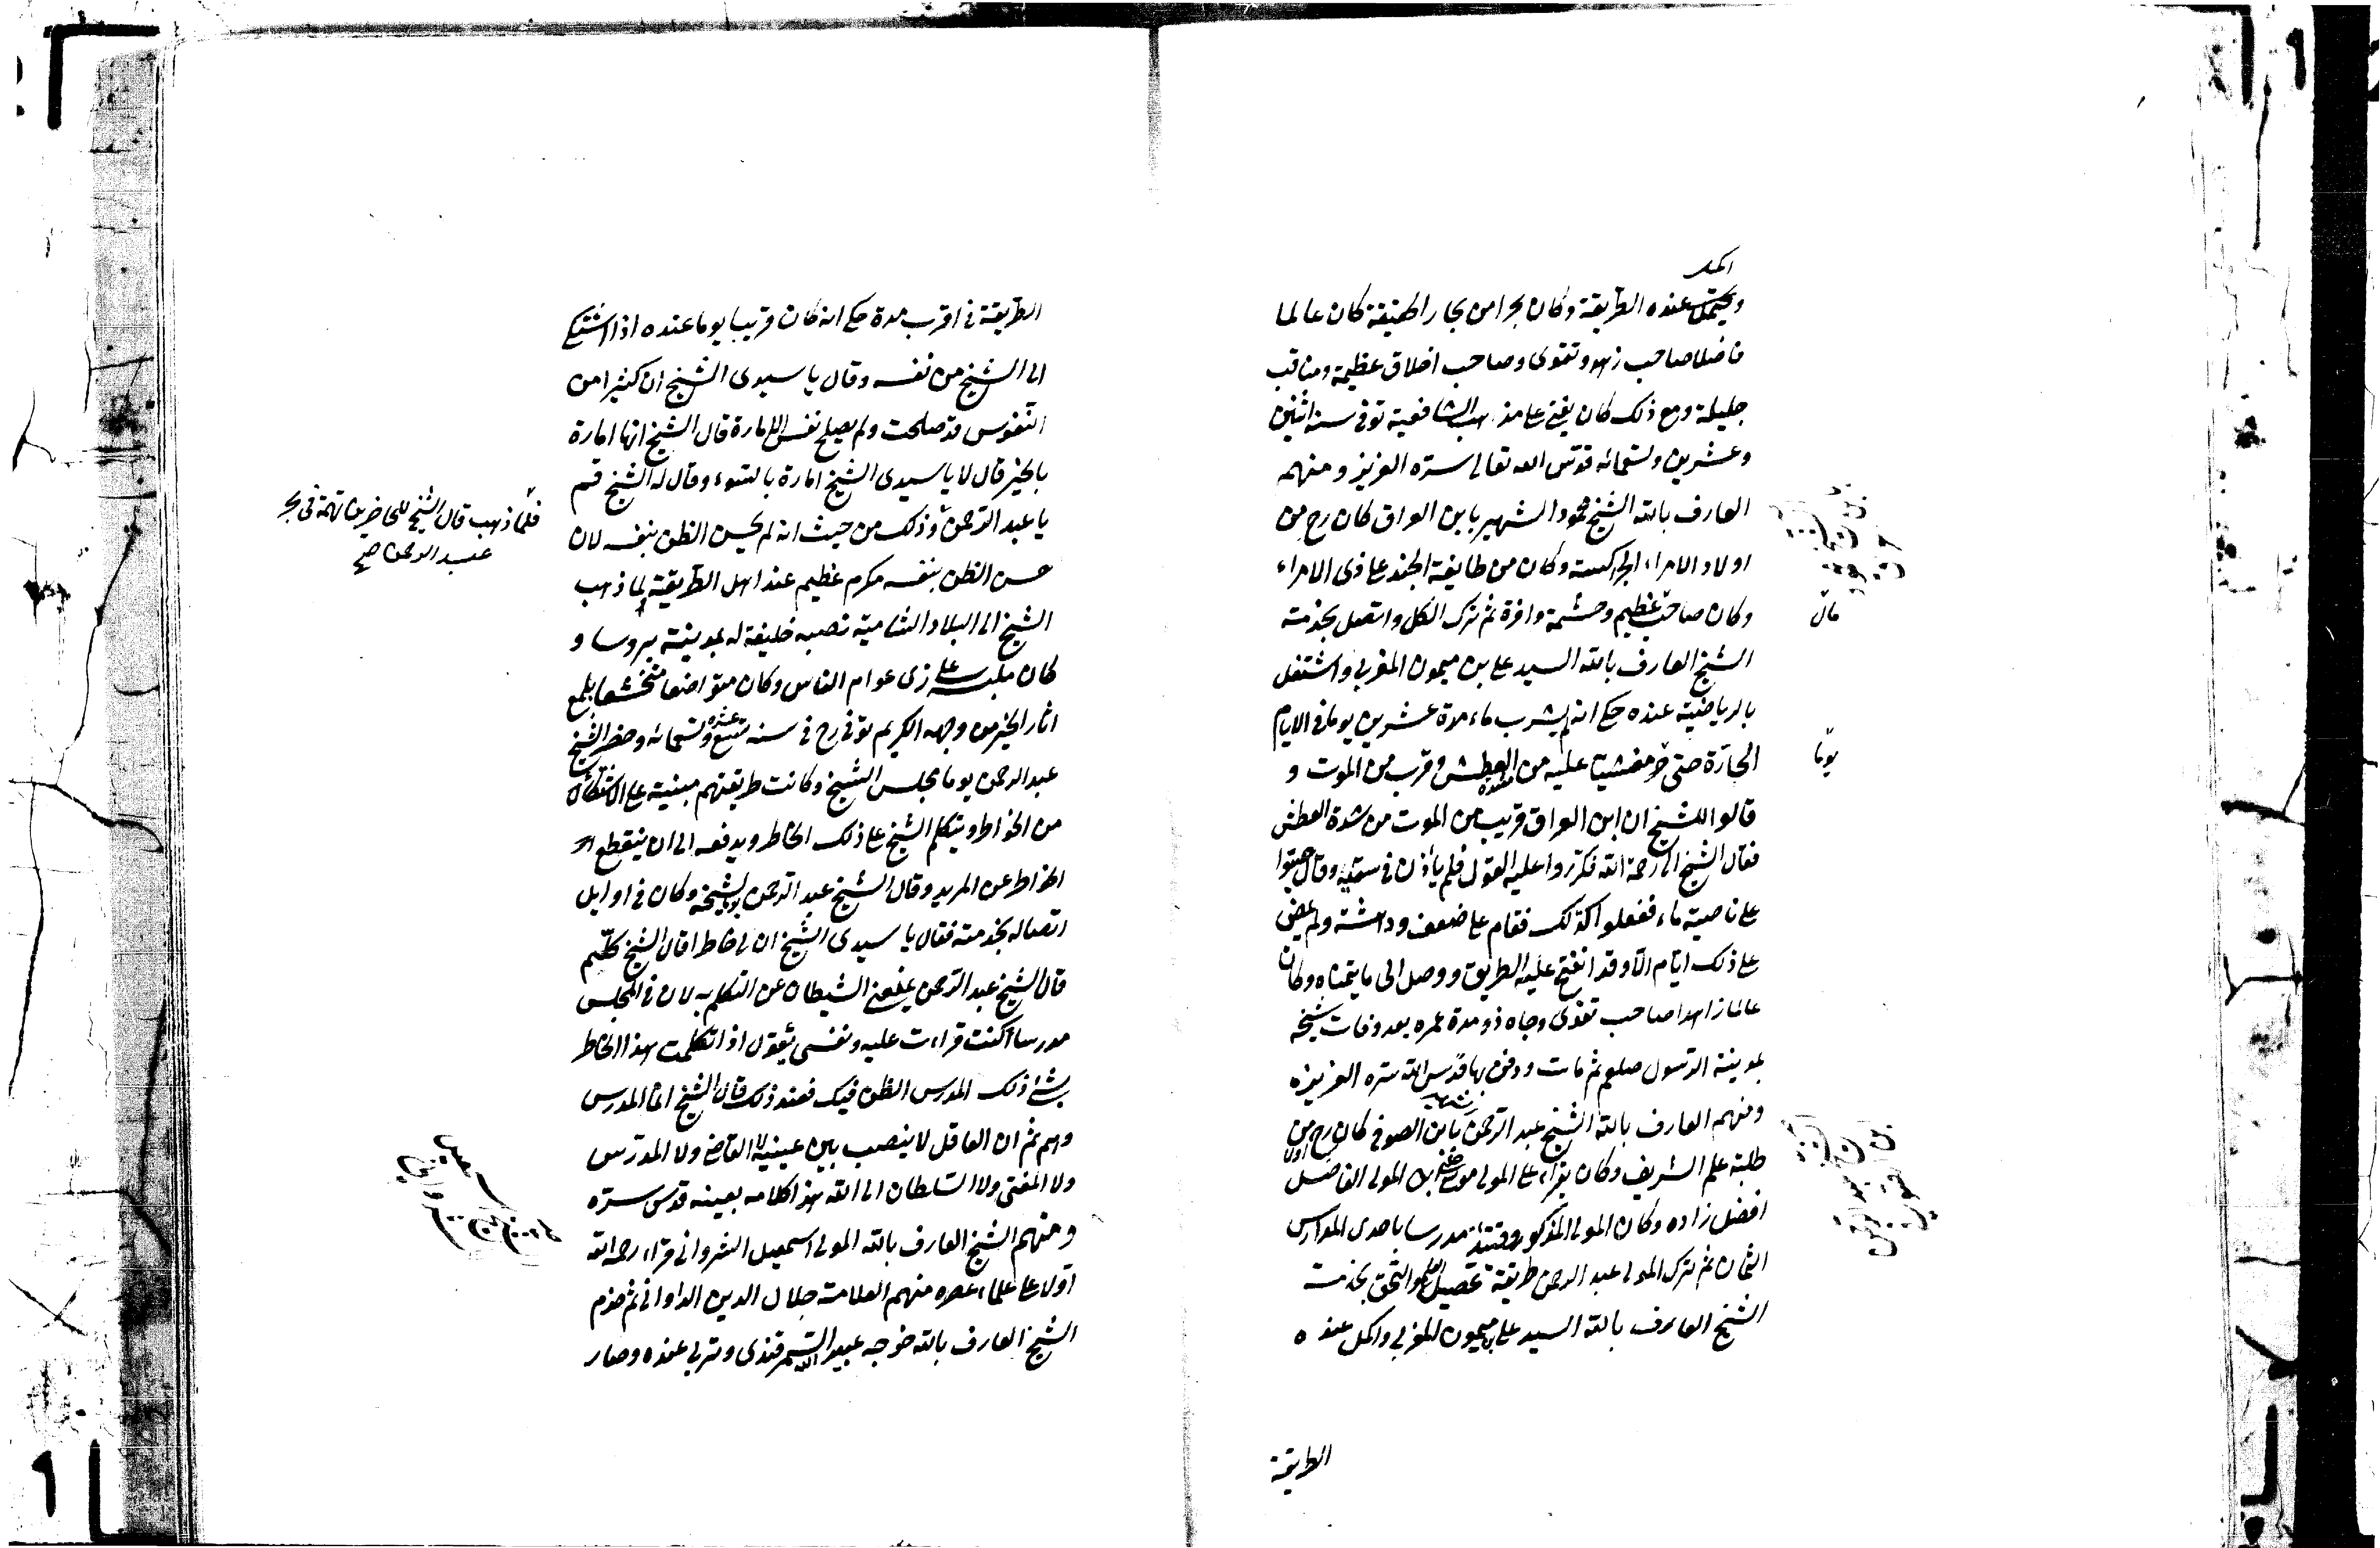 اكمل
ويحتمل عنده الطريقة وكان بحرا من بحار الحقيقة كان عالما
فاضلا صاحب زهد وتقوى وصاحب اخلاق عظيمة ومناقب
جليلة ومع ذلك كان يفتى على مذهب الشافعية توفى سنة اثنين
وعشرين وتسعمائه قدّس الله تعالى سرّه العزيز ومنهم
العارف بالله الشيخ محمود الشهير بابن العراق كان رح من
اولاد الامراء الجراكسة وكان من طايفة الجند على زى الامراء
وكان صاحب عظيم وحشمة وافرة ثم ترك الكل واتصل بخدمة
مال
الشيخ العارف بالله السيد على بن ميمون المغربى واشتغل
بالرياضة عنده حكى انه لم يشرب ماء مدة عشرين يوما فى الايام
يوما
الحارّة حتى خرّ مغشيا عليه من شدة العطش وقرب من الموت و
قالوا للشيخ ان ابن العراق قريب من الموت من شدة العطش
فقال الشيخ الى رحمة الله فكرّروا عليه القول فلم يأذن فى سقيه وقال صبّوا
على ناصيته ماء ففعلوا كذلك فقام على ضعف ودهشة ولم يمض
على ذلك ايّام الّا وقد انفتح عليه الطريق ووصل الى ما يتمناه وكان
عالما زاهدا صاحب تقوى وجاه ذو مدة عمره بعد وفات شيخه
بمدينة الرسول صلعم ثم مات ودفن بها قدّس الله سره العزيز
ومنهم العارف بالله الشيخ عبد الرحمن الشهير بابن الصوفى كان رح من
طلبة علم الشريف وكان يقراء اولا على المولى موسى چلبى ابن المولى الفاضل
افضل زاده وكان المولى المذكور وقتئذ مدرسا باحدى المدارس
الثمان ثم ترك المولى عبد الرحمن طريقة تحصيل العلم والتحق بخدمت
الشيخ العارف بالله السيد على بن ميمون المغربى واكمل عنده
الطريقة
الطريقة فى اقرب مدة حكى انه كان قريبا يوما عنده اذا اشتكى
الى الشيخ من نفسه وقال يا سيدى الشيخ ان كثيرا من
النفوس قد صلحت ولم يصلح نفسى الامارة قال الشيخ انها امارة
بالخير قال لا يا سيدى الشيخ امارة بالسّوء وقال له الشيخ قم
يا عبد الرحمن وذلك من حيث انه لم يحسن الظن بنفسه لان
فلمّا ذهب قال الشيخ للحاضرين
عبد الرحمن صح
حسن الظن بنفسه مكرم عظيم عند اهل الطريقة لما ذهب
الشيخ الى البلاد الشامية نصبه خليفة له بمدينة بروسا و
كان ملبسه على زى عوام الناس وكان متواضعا متخشعا يلمع
اثار الخير من وجهه الكريم توفى رح فى سنه تسع عشره وتسعمائه وحضر الشيخ
عبد الرحمن يوما مجلس الشيخ وكانت طريقتهم مبنية على
من الخواطر ويتكلم الشيخ على ذلك الخاطر ويدفعه الى ان ينقطع
الخواطر عن المريد وقال الشيخ عبد الرحمن يوما لشيخه وكان فى اوايل
اتصاله بخدمته فقال يا سيدى الشيخ ان لى خاطرا قال الشيخ كلّم
قال الشيخ عبد الرحمن يمنعنى الشيطان عن التكلم به لان فى المجلس
مدرسا كنت قراءت عليه ونفسى يقول اذا تكلمت بهذا الخاطر
يسئ ذلك المدرس الظن فيك فعند ذلك قال الشيخ امّا المدرس
وهم ثم ان العاقل لا ينصب بين عينيه لا القاضى ولا المدرّس
ولا المفتى ولا السلطان الى الله هذا كلامه بعينه قدس سرّه
ومنهم الشيخ العارف بالله المولى اسمعيل الشروانى قراء رحمه الله
اوّلا على علماء عصره منهم العلامت جلال الدين الداوانى ثم خدم
الشيخ العارف بالله خوجه عبيد الله السمرقندى وتربى عنده وصار